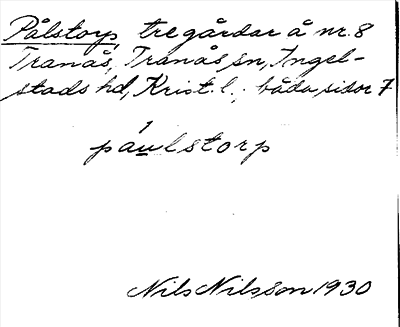 Pålstorp, tre gårdar å nr. 8
Tranås, Tranås sn, Ingel-
stads hd, Krist. l., båda sidor 7
páulstorp
Nils Nilsson 1930